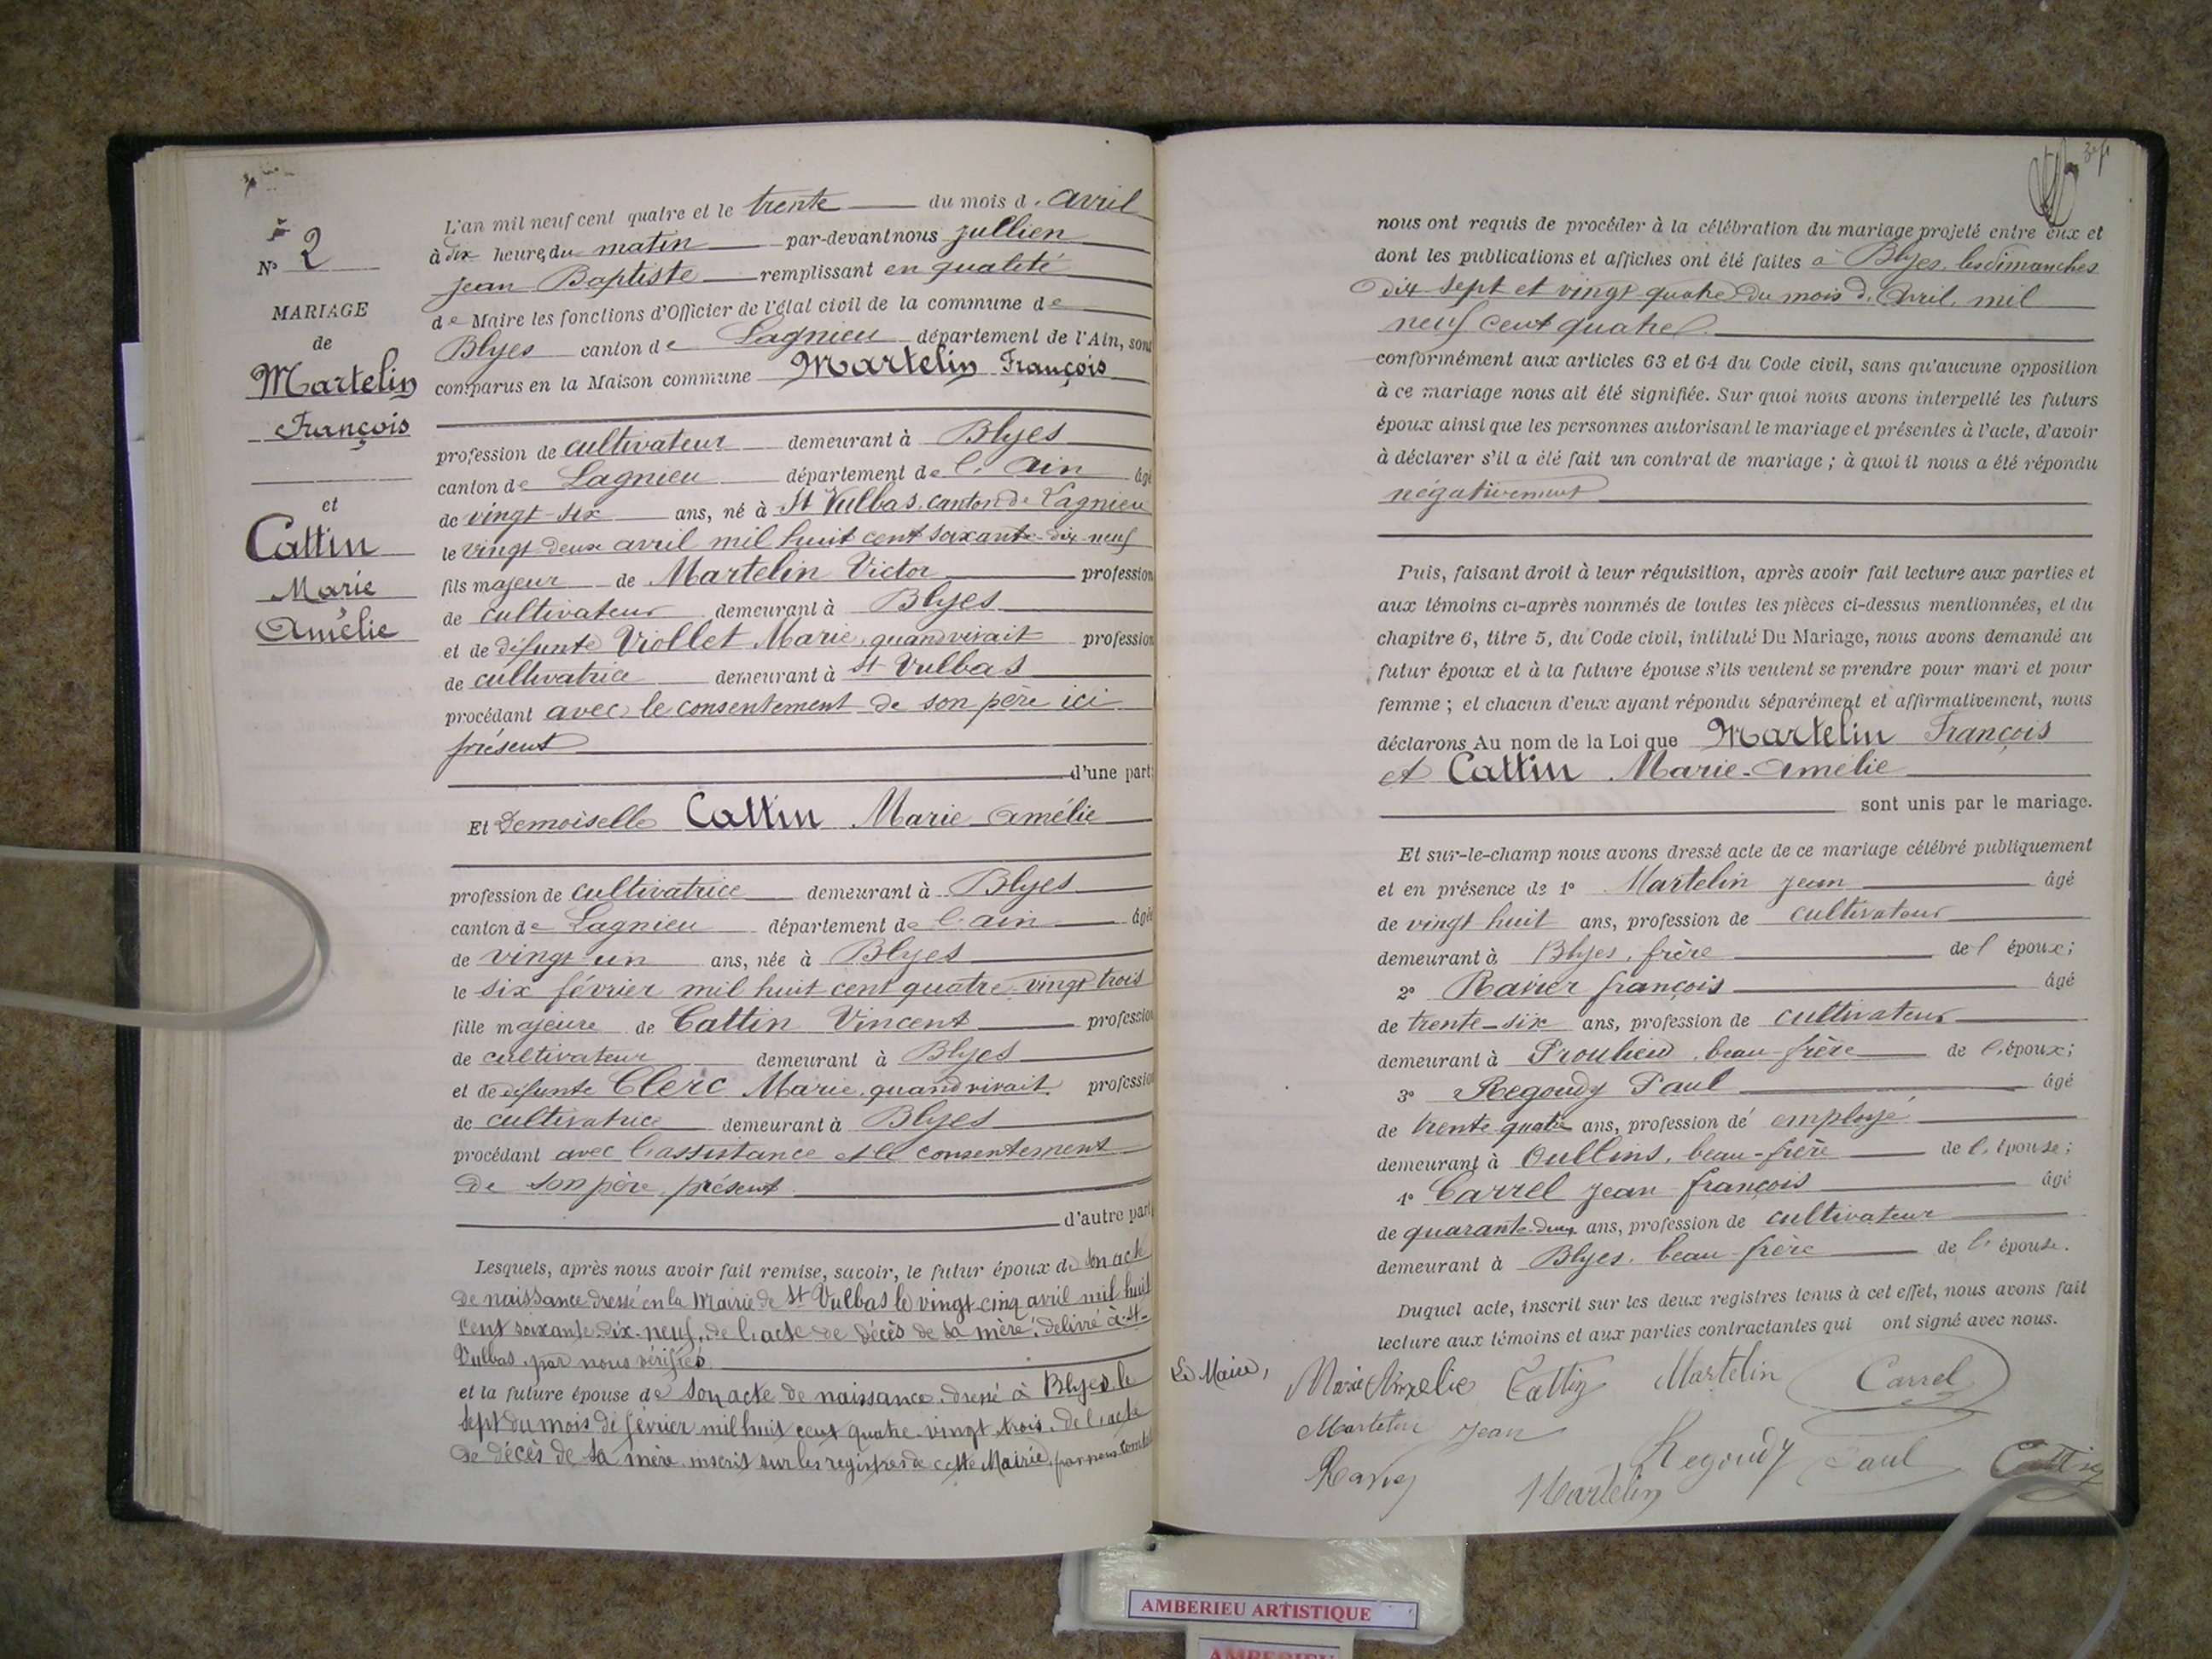 N° 2
MARIAGE
de
Martelin
François
et
Cattin
Marie
Amélie
L'an mil neuf cent quatre et le trente du mois d'avril
à dix heures du matin par-devant nous Jullien
Jean Baptiste remplissant en qualité
de Maire les fonctions d'Officier de l'état civil de la commune de
Blyes canton de Lagnieu département de l'Ain, sont
comparus en la Maison commune Martelin François
profession de cultivateur demeurant à Blyes
canton de Lagnieu département de l'Ain âgé
de vingt-six ans, né à St Vulbas, canton de Lagnieu
le vingt-deux avril mil huit cent soixante-dix-neuf
fils majeur de Martelin Victor profession
de cultivateur demeurant à Blyes
et de défunte Viollet Marie, quand vivait profession
de cultivatrice demeurant à St Vulbas
procédant avec le consentement de son père ici
présent
d'une part;
Et Demoiselle Cattin Marie Amélie
profession de cultivatrice demeurant à Blyes
canton de Lagnieu département de l'ain âgée
de vingt un ans, née à Blyes
le six février mil huit cent quatre-vingt trois
fille majeure de Cattin Vincent profession
de cultivateur demeurant à Blyes
et de défunte Clerc Marie, quand vivait profession
de cultivatrice demeurant à Blyes
procédant avec l'assistance et le consentement
de son père, présent
d'autre part
Lesquels, après nous avoir fait remise, savoir, le futur époux de son acte
de naissance dressé en la Mairie de St Vulbas le vingt-cinq avril mil huit
cent soixante-dix-neuf, de l'acte de décès de sa mère, délivré à St-
Vulbas, par nous vérifiés
et la future épouse de son acte de naissance, dressé à Blyes, le
sept du mois de février mil huit cent quatre-vingt trois, de l'acte
de décès de sa mère inscrit sur les registres de cette Mairie, par nous
nous ont requis de procéder à la célébration du mariage projeté entre eux et
dont les publications et affiches ont été faites à Blyes, les dimanches
dix sept et vingt quatre du mois d'Avril, mil
neuf cent quatre.
conformément aux articles 63 et 64 du Code civil, sans qu'aucune opposition
à ce mariage nous ait été signifiée. Sur quoi nous avons interpellé les futurs
époux ainsi que les personnes autorisant le mariage et présentes à l'acte, d'avoir
à déclarer s'il a été fait un contrat de mariage ; à quoi il nous a été répondu
négativement
Puis, faisant droit à leur réquisition, après avoir fait lecture aux parties et
aux témoins ci-après nommés de toutes les pièces ci-dessus mentionnées, et du
chapitre 6, titre 5, du Code civil, intitulé Du Mariage, nous avons demandé au
futur époux et à la future épouse s'ils veulent se prendre pour mari et pour
femme ; et chacun d'eux ayant répondu séparément et affirmativement, nous
déclarons Au nom de la Loi que Martelin François
et Cattin Marie-Amélie
sont unis par le mariage.
Et sur-le-champ nous avons dressé acte de ce mariage célébré publiquement
et en présence de 1° Martelin Jean âgé
de vingt huit ans, profession de cultivateur
demeurant à Blyes, frère de l'époux;
2° Ravier françois âgé
de trente-six ans, profession de cultivateur
demeurant à Proulieu, beau-frère de l'époux;
3° Regoudy Paul âgé
de trente quatre ans, profession de employé
demeurant à Oullins, beau-frère de l'épouse;
4° Carrel Jean françois âgé
de quarante-deux ans, profession de cultivateur
demeurant à Blyes, beau-frère de l'épouse.
Duquel acte, inscrit sur les deux registres tenus à cet effet, nous avons fait
lecture aux témoins et aux parties contractantes qui ont signé avec nous.
Le Maire, Marie Amélie Cattin Martelin Carrel
Martelin Jean Regoudy Paul Cattin
Ravier Martelin
AMBERIEU ARTISTIQUE
AMBERIEU